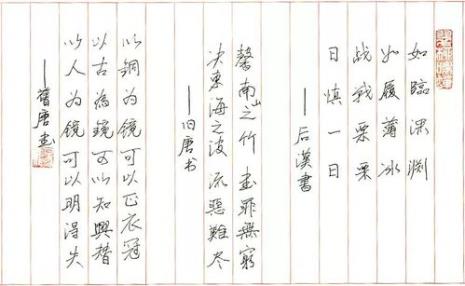 如臨深渊
如履薄冰
战戰栗栗
日慎一日
——后漢書
罄南山之竹 書罪無窮
决東海之波 流惡難尽
——旧唐书
以銅为鏡可以正衣冠
以古為鏡可以知興替
以人为鏡可以明得失
——舊唐書